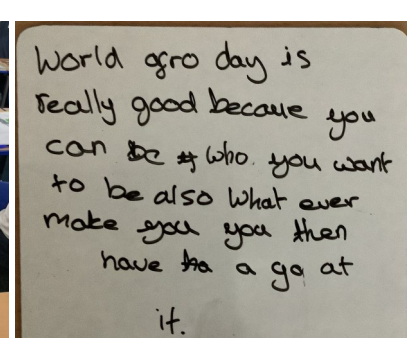 World afro day is
really good becaue you
can be who. you want
to be also what ever
make you you then
have a go at
it.